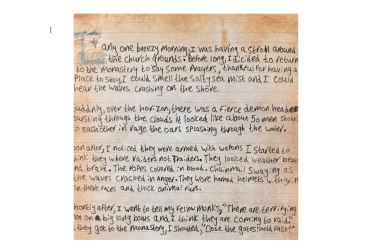 Early one breezy morning, I was having a stroll around
the church grounds. Before long, I dicided to return
to the monastery to say some Prayers, thankful for having a
Place to stay. I could smell the salty sea mist and I could
hear the waves crashing on the shore.
Suddenly, over the horizon, there was a fierce demon head
bursting through the clouds it looked like about 50 men
to eachother in rage the oars splashing through the water.
Soon after, I noticed they were armed with I started to
think they where raiders not traders. They looked weather
and brave. The ropes covered in blood. Chainmail swaying as
the waves crashed in anger. They were horned helmets
on there faces and thick animal furs.
Shortly after, I went to tell my fellow monks, "There are terrifying
men on big long boats and I think they are coming to raid."
they got to the monastery, I shouted, "Close the gates hold fast!"